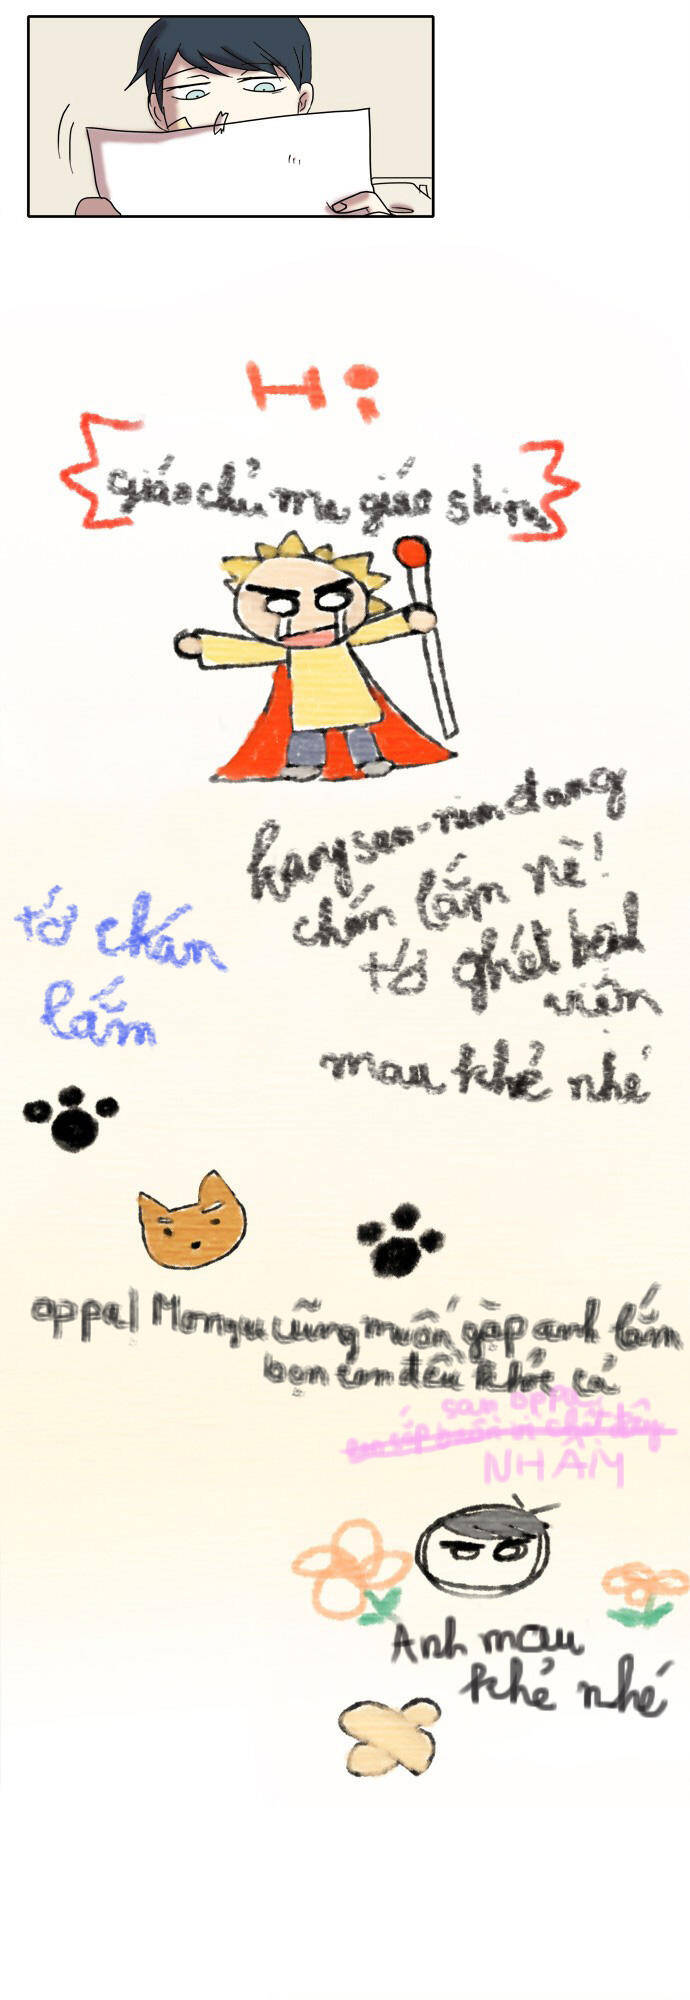 Hi
giáo chủ ma giáo shinu
kang san-nim đang
chán lắm nè!
tớ ghét bệnh
viện
mau khẻ nhé
tớ chán
lắm
oppa! Mongu cũng muốn gặp anh lắm
bọn em đều khóc cả
san oppa
NHẦM
Anh mau
khẻ nhé